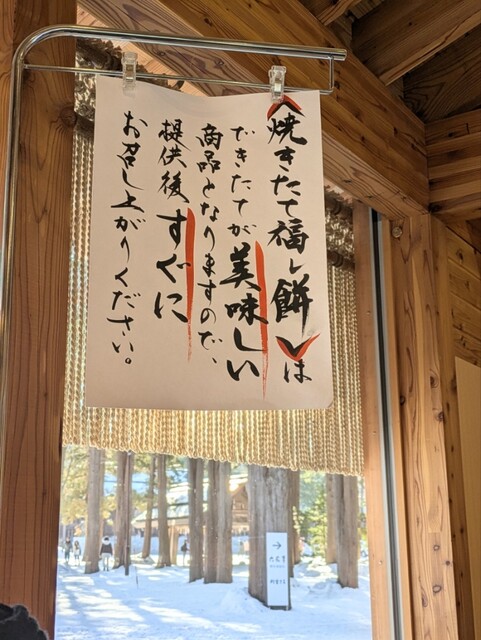 〈焼きたて福かしわ餅〉は
できたてが美味しい
商品となりますので、
提供後すぐに
お召し上がりください。
→